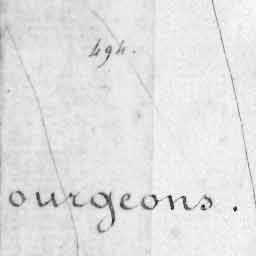 494.
ourgeons.